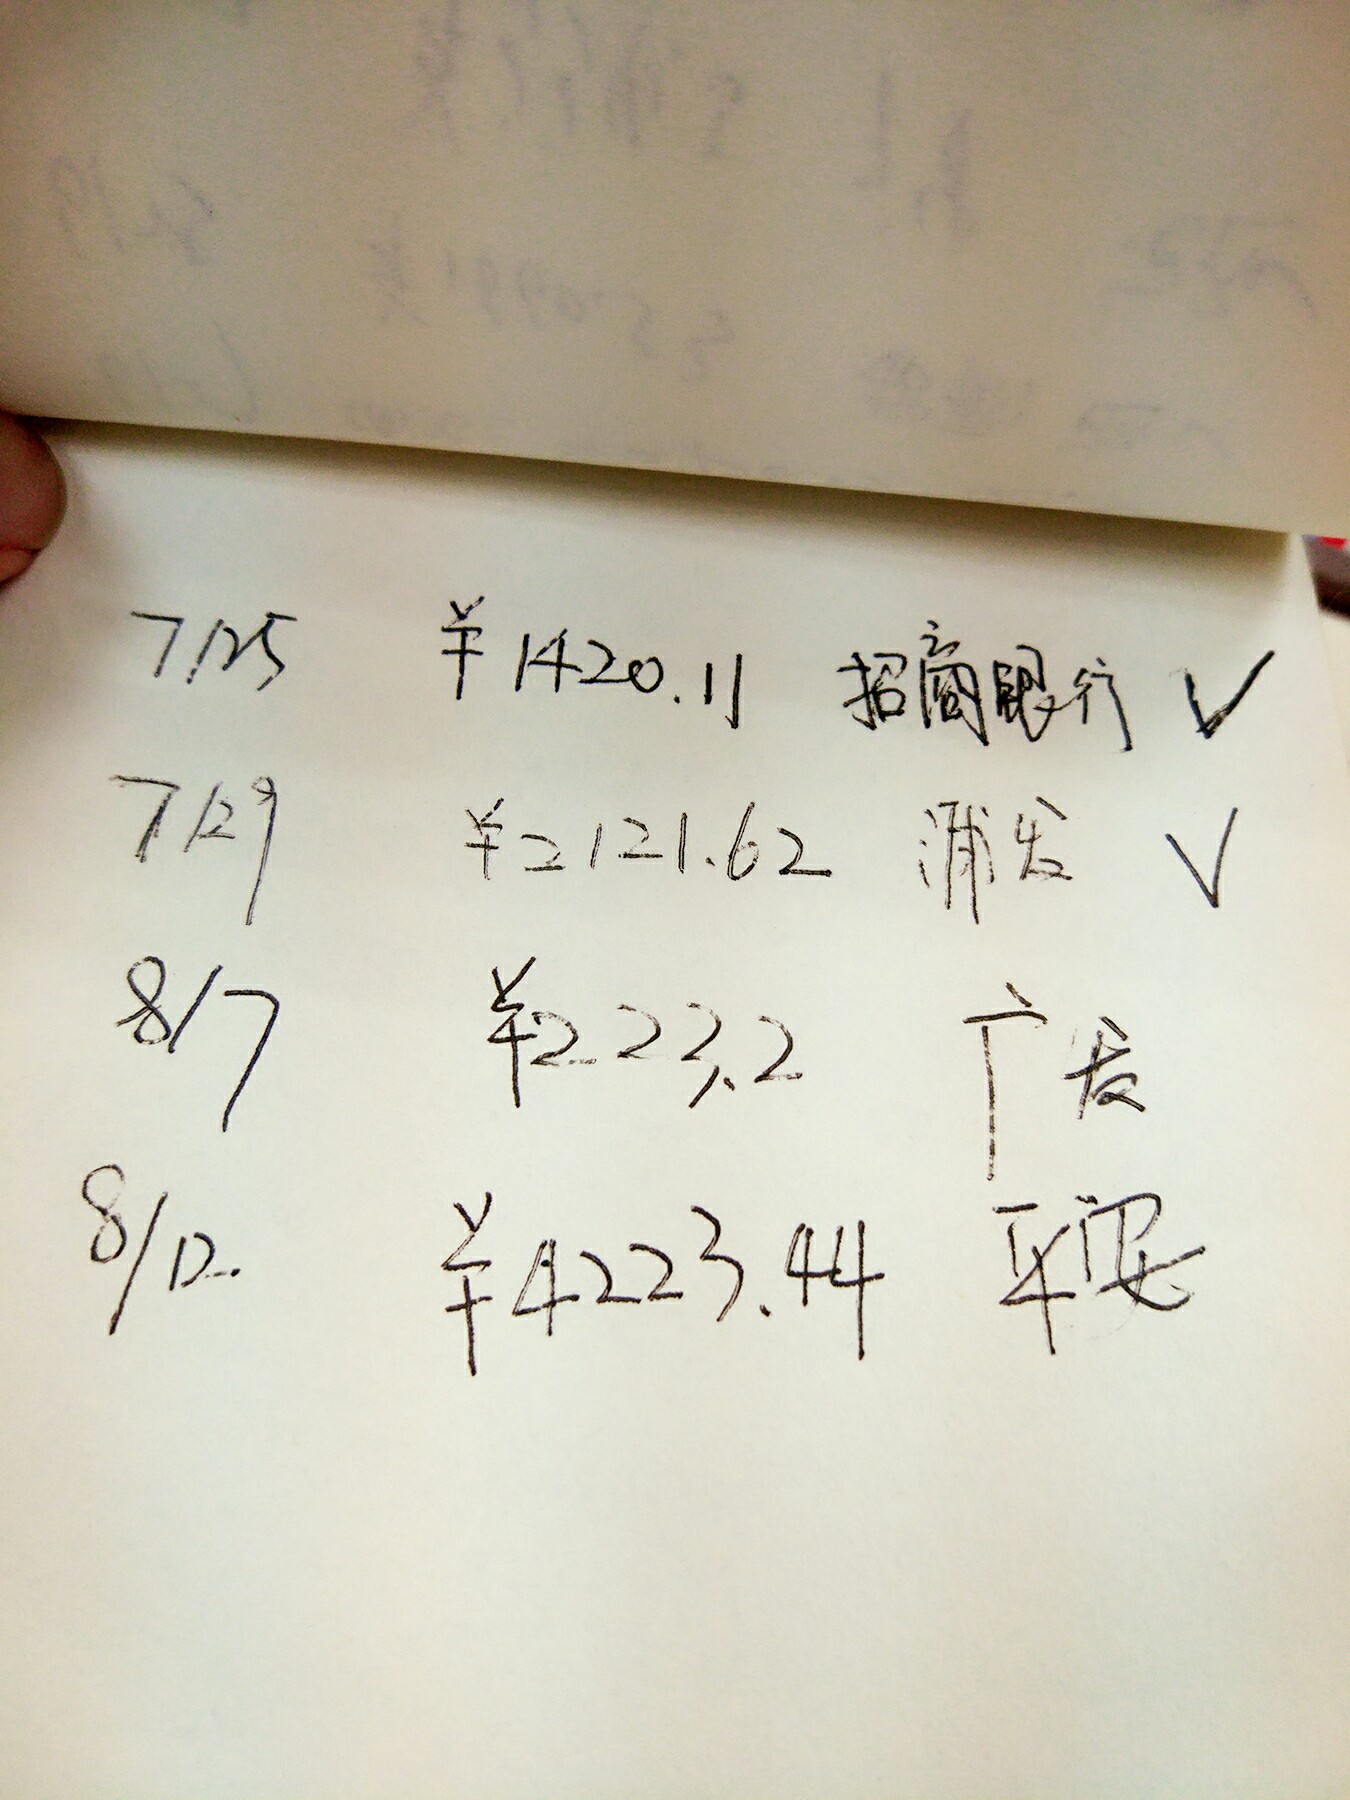 7/25 ¥1420.11 招商银行 √
7/29 ¥2121.62 浦发 √
8/7 ¥2223.2 广发
8/12. ¥4223.44 平安